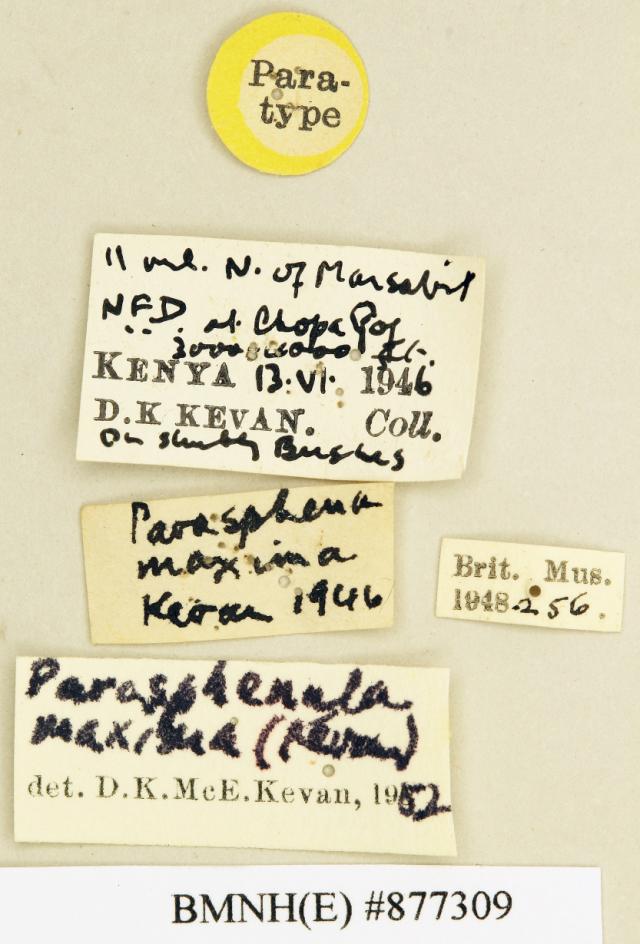 Para-
type
11 ml. N. of Marsabit
N.F.D. at Chopa Gof
3000-4000 ft.
KENYA 13.VI. 1946
D.K KEVAN. Coll.
On shrubby Bushes
Parasphena
maxima
Kevan 1946
Brit. Mus.
1948.256.
Parasphenula
maxima (Kevan)
det. D.K.McE.Kevan, 1952
BMNH(E) #877309